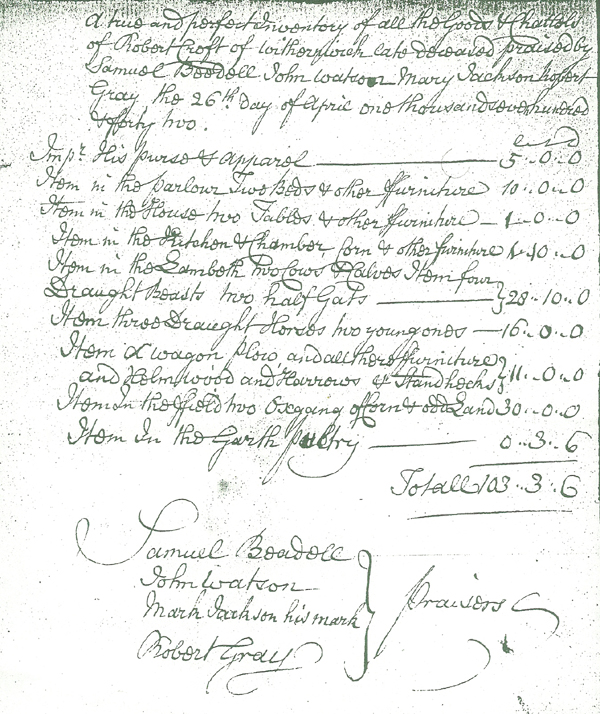 A true and perfect Inventory of all the Goods & Chattels
of Robert Croft of Withernwick late deceased praised by
Samuel Beedell John Watson Mary Jackson Robert
Gray the 26th Day of April one thousand seven hundred
& forty two.
Impr. His purse & apparel 5 - 0 - 0
Item in the parlour Two Beds & other ffurniture 10 - 0 - 0
Item in the House two Tables & other ffurniture 1 - 0 - 0
Item in the Kitchen & Chamber, Corn & other furniture 1 - 10 - 0
Item in the Lambeth two Cows 2 Calves Item four
Draught Beasts two half Gats 28 - 10 - 0
Item three Draught Horses two young ones 16 - 0 - 0
Item A wagon plow and all there ffurniture
and Helmwood and Harrows & Standhecks 11 - 0 - 0
Item In the ffield two Oxgang of Corn & odd Land 30 - 0 - 0
Item In the Garth pultry 0 - 3 - 6
Totall 103 - 3 - 6
Samuel Beadell
John Watson
Mark Jackson his mark
Robert Gray
praisers